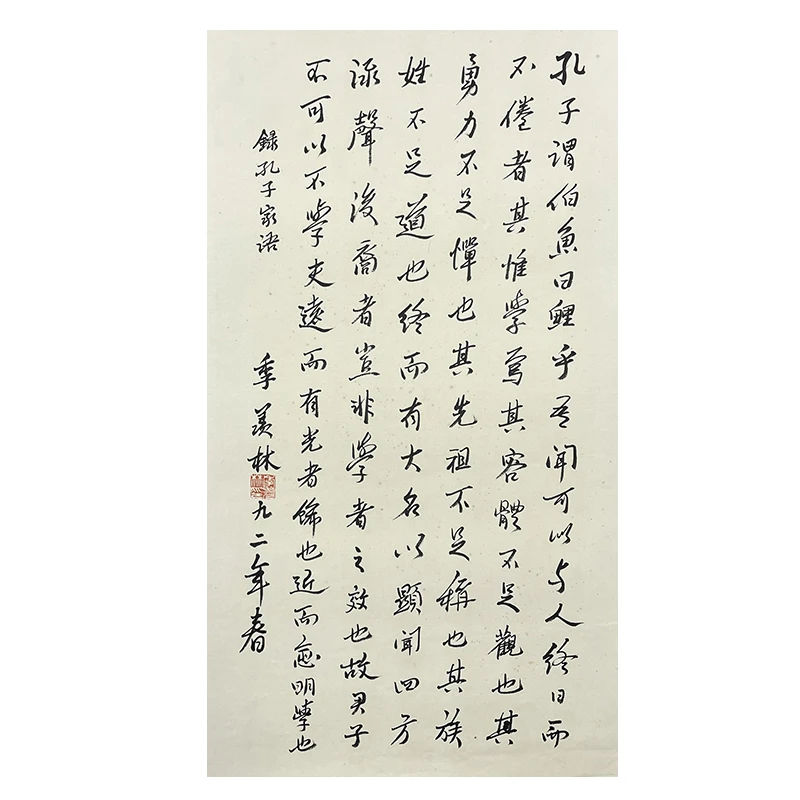 孔子謂伯魚曰鯉乎吾聞可以与人終日而
不倦者其惟學焉其容體不足觀也其
勇力不足憚也其先祖不足稱也其族
姓不足道也终而有大名以顯聞四方
流聲後裔者豈非學者之效也故君子
不可以不學夫遠而有光者飾也近而愈明學也
錄孔子家语
季羡林 九二年春